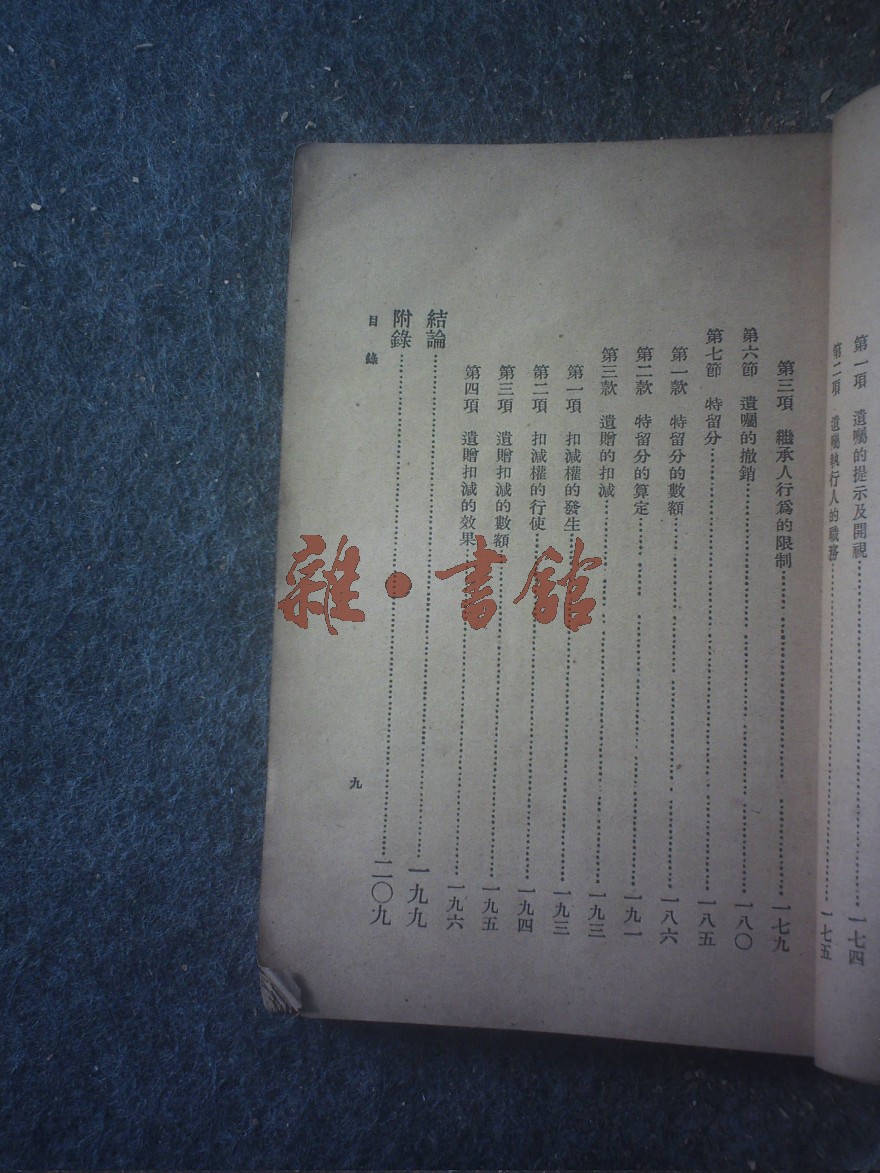 第一項　遺囑的提示及開視……一七四
第二項　遺囑執行人的職務……一七五
第三項　繼承人行爲的限制……一七九
第六節　遺囑的撤銷……一八〇
第七節　特留分……一八五
第一款　特留分的數額……一八六
第二款　特留分的算定……一九一
第三款　遺贈的扣減……一九三
第一項　扣減權的發生……一九三
第二項　扣減權的行使……一九四
第三項　遺贈扣減的數額……一九五
第四項　遺贈扣減的效果……一九六
結論……一九九
附錄……二〇九
目錄
九
雜·書館